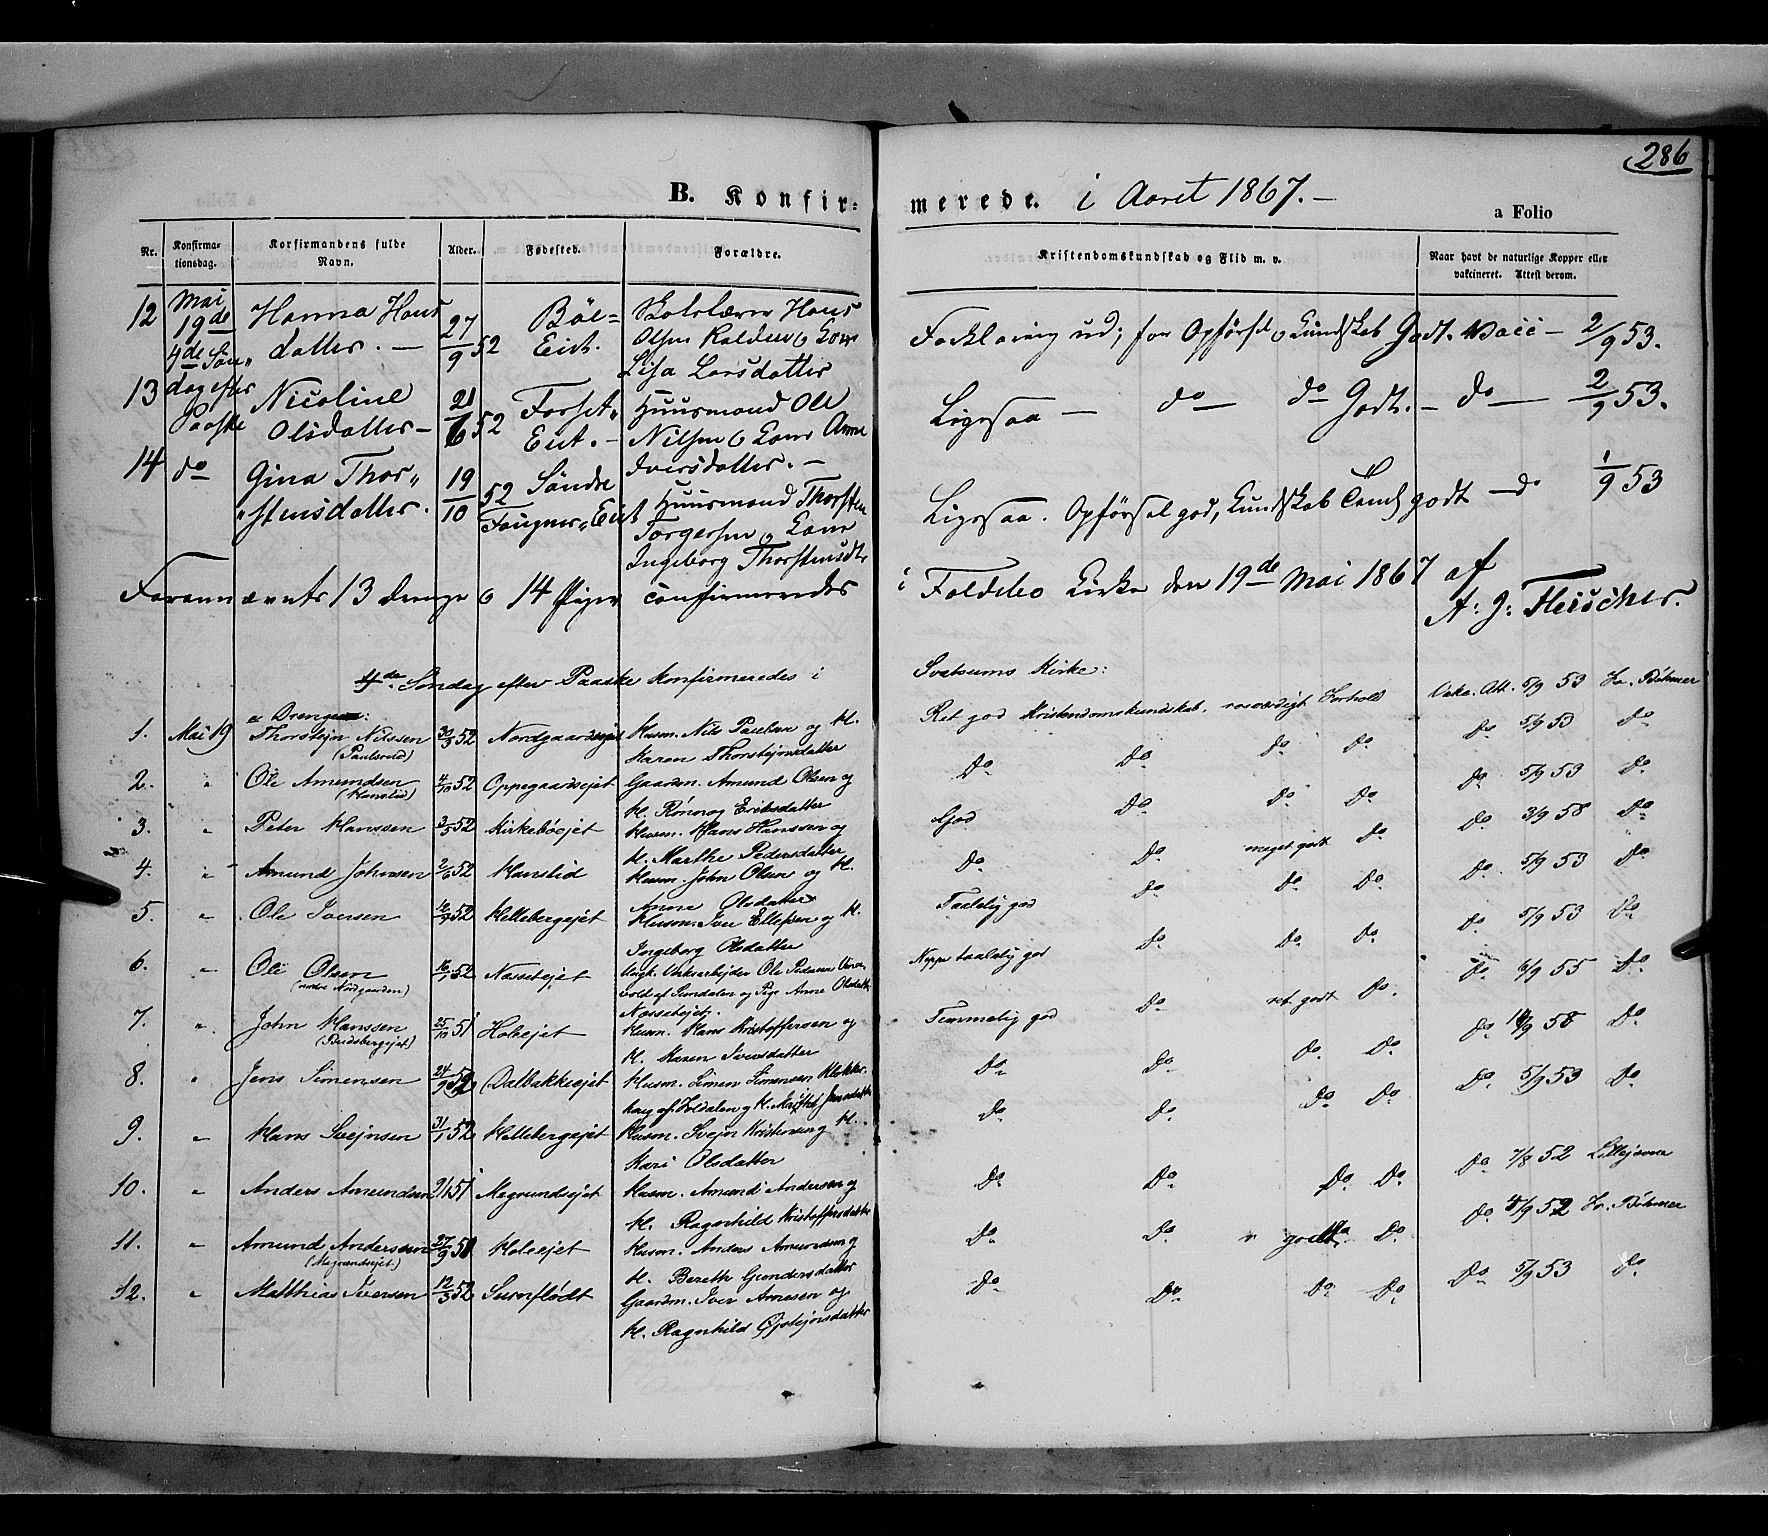 286
B. Konfir- merede. i Aaret 1867.-
a Folio
Nr. Konfirma-tionsdag. Konfirmandens fulde Navn. Alder. Fødested. Forældre. Kristendomskundskab og Flid m. v. Naar havt de naturlige Kopper eller vakcineret. Attest derom.
12 Mai 19de Hanna Hans Skolelærer Hans
4de Søn„ datter. — 27/9 52 Eiet. Olsen
Lisa Larsdatter
Opførsel Kundskab Godt. Vacc — 2/9 53.
13 dag efter Paaske Nicoline Olsdatter — 21/6 52 Forset„ Eiet. — Huusmand Ole
Nilsen & Kone Anne
Iversdatter. —
Ligesaa — do — do Godt. — do — 2/9 53.
14 do Gina Thor„ 19/10 52 Søndre
„stensdatter. Faugner„ Eiet Huusmand Thorsten
Torgersen & Kone
Ingeborg Thorstensdtr
Ligesaa. Opførsel god, Kundskab Temlig godt — do 1/9 53
Forannævnte 13 Drenge & 14 Piger confirmeredes i Foldebo Kirke den 19de Mai 1867 af
A: G: Fleischer.
4de Søndag efter Paaske konfirmeredes i Svatsums Kirke:
a Drenge:
1. Mai 19 Thorstejn Nilssen 30/3 52 Nordgaardsejet Husm. Nils Paulsen og K.
(Paulsveld) Karen Thorstejnsdatter
Ret god Kristendomskundskab, rosværdigt Forhold Vakc. Att. 5/9 53 Hr. Bøhmer
2. " Ole Amundsen 4/10 52 Oppegaardsejet Gaardm. Amund Olsen og
(Hanslid) K. Rønnog Eriksdatter
Do. Do. Do. Do. Do. 5/9 53 Do.
3. " Peter Hanssen 3/5 52 Kirkebøejet Husm. Hans Hanssen og
K. Marthe Pedersdatter
God Do. Do. Do. Do. 5/9 53 Do.
4. " Amund Johnsen 2/6 52 Hanslid Husm. John Olsen og K.
Anne Olsdatter
Do. Do. meget godt Do. Do. 3/9 58 Do.
5. " Ole Iversen 16/9 52 Kellebergsejet Husm. Iver Ellefsen og K.
Ingeborg Olsdatter
Taalelig god Do. Do. Do. Do. 5/9 53 Do.
6. " Ole Olsen 16/1 52 Næssetejet Ungk. Ole Pedersen
(nordre Nordgaarden) og Pige Anne Olsdatter
Næssetejet.
Neppe taalelig god Do. Do. Do. Do. 5/9 53 Do.
7. " John Hanssen 25/10 51 Holsejet Husm. Hans Kristoffersen og
K. Karen Iversdatter
Temmelig god Do. ret godt Do. Do. 6/9 55 Do.
8. " Jens Simensen 24/9 52 Dalbakkesejet Husm. Simen Simensen
Do. Do. Do. Do. Do. 58 Do.
9. " Hans Svejnsen 31/1 52 Kellebergsejet Husm. Svejn Kristensen og K.
Kari Olsdatter
Do. Do. Do. Do. Do. 5/9 53 Do.
10. " Anders Amundsen 51 Megrundsejet Husm. Amund Andersen og
K. Ragnhild Kristoffersdatter
Do. Do. Do. Do. Do. 7/8 52
11. " Amund Andersen 27/9 51 Holsejet Husm. Anders Amundsen og
(Megrundsejet) K. Bereth Gundersdatter
Do. Do. godt Do. Do. 5/9 52 Hr. Bøhmer
12. " Matthias Iversen 12/3 52 Surnflødt Gaardm. Iver Arnesen og
K. Ragnhild Øjstejnsdatter
Do. Do. Do. Do. Do. 5/9 53 Do.